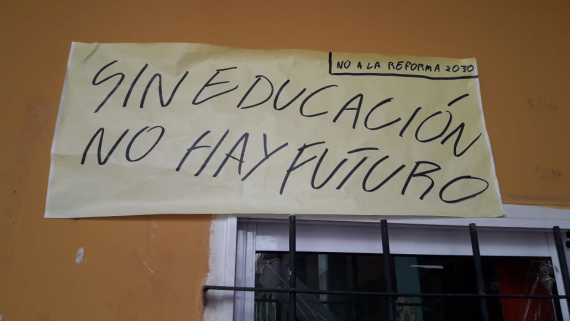 NO A LA REFORMA 2030
SIN EDUCACIÓN
NO HAY FUTURO